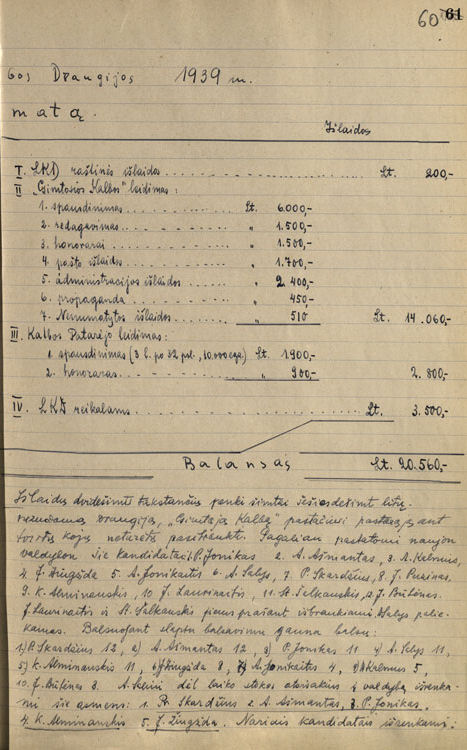 60 61
bos Draugijos 1939 m.
matą.
Išlaidos
I. LKD raštinės išlaidos Lt. 200,-
II "Gimtosios Kalbos" leidimas:
1. spausdinimas Lt. 6.000,-
2. redagavimas " 1.500,-
3. honorarai " 1.500,-
4. pašto išlaidos " 1.700,-
5. administracijos išlaidos " 2 400,-
6. propaganda " 450,-
7. Nenumatytos išlaidos " 510 Lt. 14.060,-
III Kalbos Patarėjo leidimas:
1. spausdinimas (3 l. po 32 psl., 10.000 egz.) Lt. 1900,-
2. honoraras " 900,- 2.800,-
IV. LKD reikalams Lt. 3.500,-
Balansas Lt. 20.560,-
Išlaidų dvidešimts tūkstančių penki šimtai šešiasdešimt litų.
draugiją, "Gimtąją Kalbą" pastačiusi ant
tvirtų kojų neturėtų pasitraukti. Pagaliau pastatomi naujon
valdybon šie kandidatai: P. Jonikas 2. A. Ašmantas, 3. A. Kalnius,
4. J. Žiugžda 5. A. Jonikaitis 6. A. Salys, 7. P. Skardžius, 8. J. Puzinas.
9. K. Alminauskis, 10 J. Laurinaitis, 11. St. Šalkauskis, J. Būtėnas.
J. Laurinaitis ir St. Šalkauskis jiems prašant išbraukiami,
kamas. Balsuojant slaptu balsavimu gauna balsų:
1) P. Skardžius 13, 2) A. Ašmantas 12, 3) P. Jonikas 11 4) A. Salys 11,
5) K. Alminauskis 11, 6) J. Žiugžda 8, 7) A. Jonikaitis 4, Kalnius 5,
10. J. Būtėnas 3. A. Saliui dėl laiko stokos atsisakius į valdybą išrenka-
mi šie asmens: 1. Pr. Skardžius 2. A. Ašmantas, 3. P. Jonikas.
4. K. Alminauskis 5. J. Žiugžda. Nariais kandidatais išrenkami: